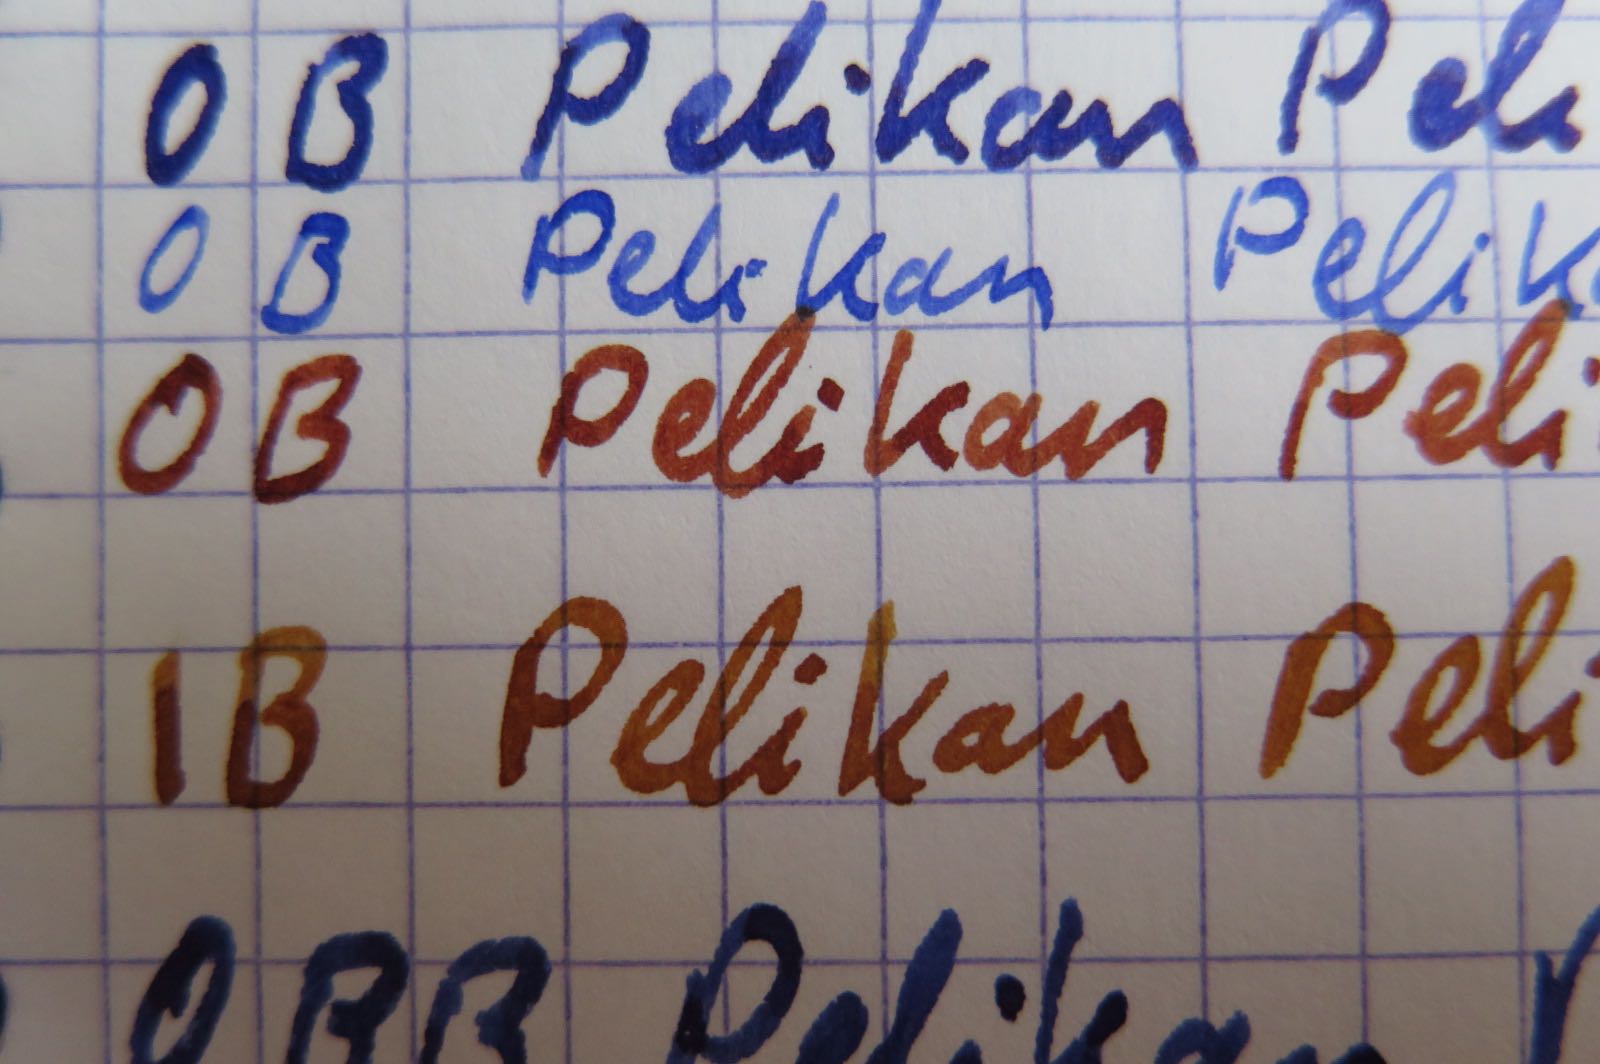 OB Pelikan Peli
OB Pelikan Pelik
OB Pelikan Peli
1B Pelikan Peli
OBB Pelikan